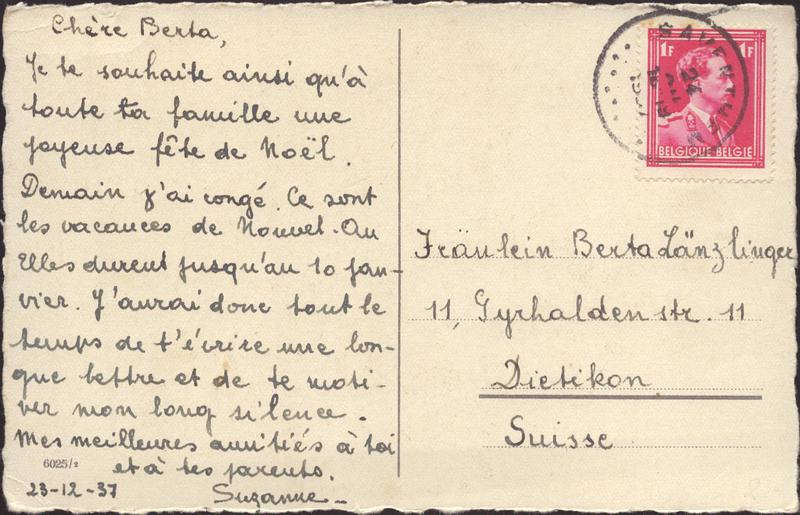 Chère Berta,
Je te souhaite ainsi qu'à
toute ta famille une
joyeuse fête de Noël.
Demain j'ai congé. Ce sont
les vacances de Nouvel-An
Elles durent jusqu'au 10 jan-
vier. J'aurai donc tout le
temps de t'évrire une lon-
gue lettre et de te moti-
ver mon long silence.
Mes meilleures amitiés à toi
et à tes parents.
6025/2
23-12-37
Suzanne-
1F 1F
BELGIQUE·BELGIË
Fräulein Berta Länzlinger
11, Gyrhaldenstr. 11
Dietikon
Suisse